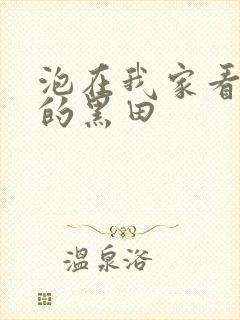 泡在我家看
的黑田
温泉洛